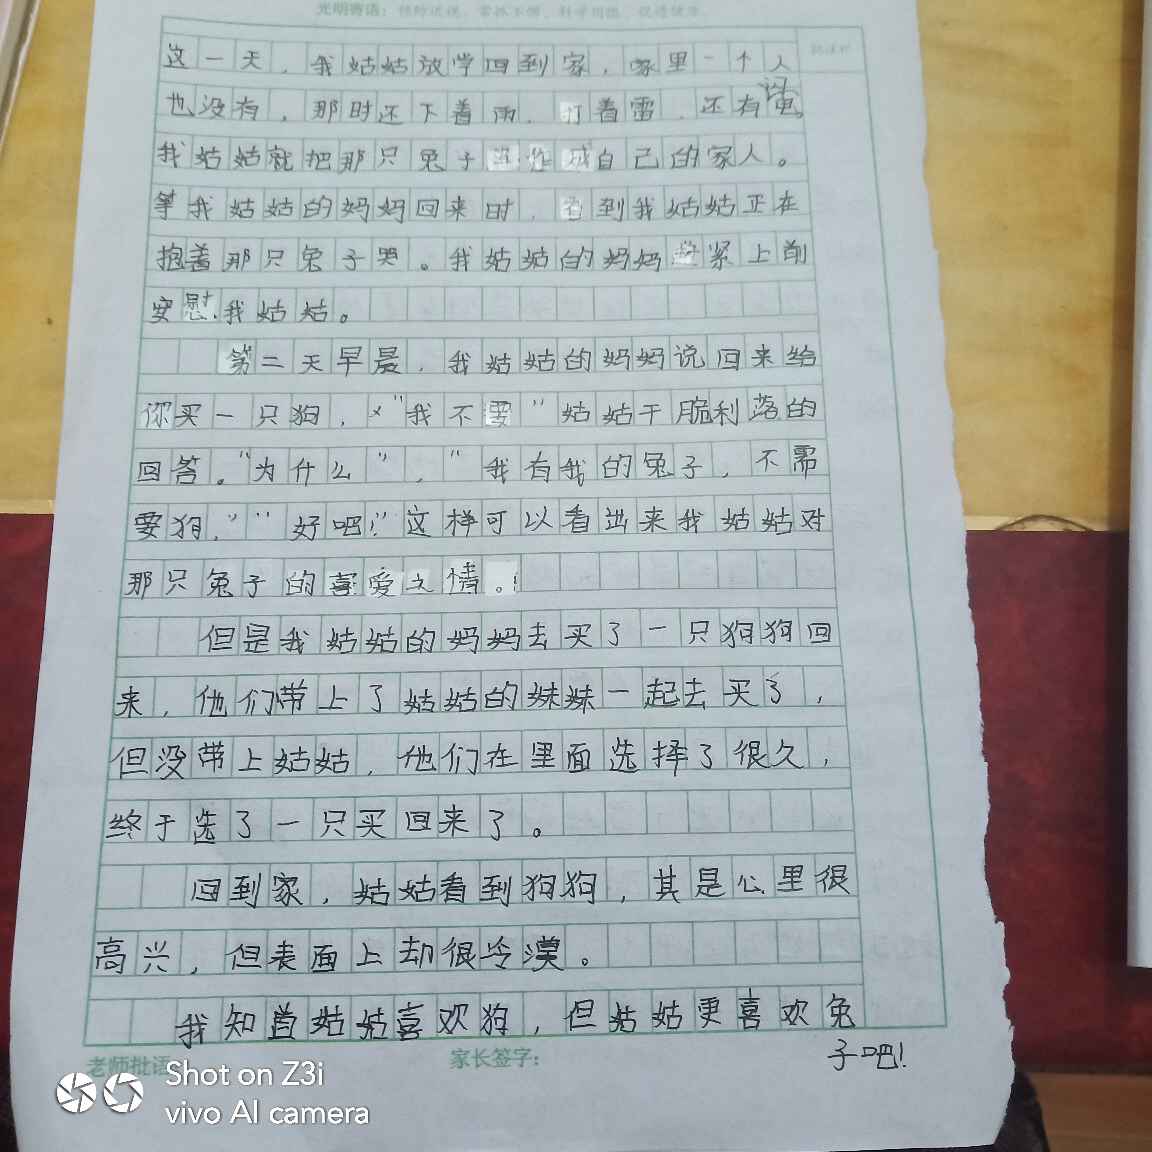 这一天，我姑姑放学回到家，家里一个人
也没有，那时还下着雨，打着雷，还有
我姑姑就把那只兔子当作成自己的家人。
等我姑姑的妈妈回来时，看到我姑姑正在
抱着那只兔子哭。我姑姑的妈妈赶紧上前
安慰我姑姑。
第二天早晨，我姑姑的妈妈说回来给
你买一只狗，"我不要"姑姑干脆利落的
回答。"为什么"，"我有我的兔子，不需
要狗，""好吧！"这样可以看出来我姑姑对
那只兔子的喜爱之情。！
但是我姑姑的妈妈去买了一只狗狗回
来，他们带上了姑姑的妹妹一起去买了，
但没带上姑姑，他们在里面选择了很久，
终于选了一只买回来了。
回到家，姑姑看到狗狗，其是心里很
高兴，但表面上却很冷漠。
我知道姑姑喜欢狗，但姑姑更喜欢兔
子吧！
老师批语
家长签字：
Shot on Z3i
vivo AI camera